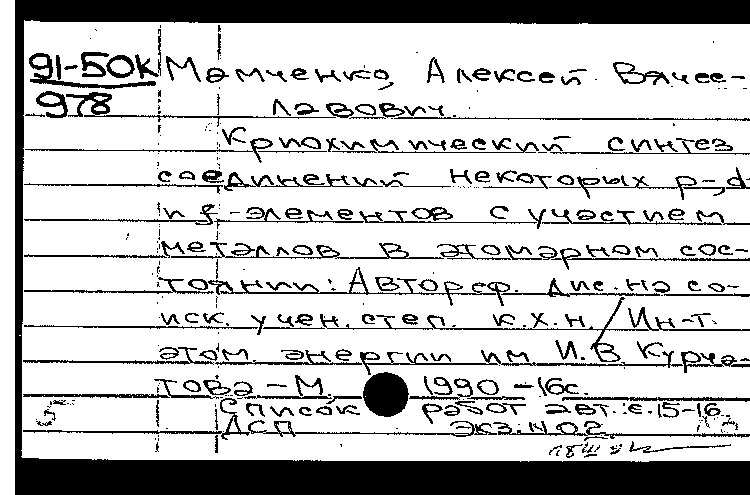 91-50к Мамченко, Алексей Вячес-
978 лавович.
Криохимический синтез
соединений некоторых p-, d-
и f-элементов с участием
металлов в атомарном сос-
тоянии: Автореф. дис. на со-
иск. учен. степ. к.х.н. / Ин-т.
атом. энергии им. И.В. Курча-
това - М., 1990 - 16с.
5 Список работ авт.: с. 15-16.
ДСП Экз. N 02